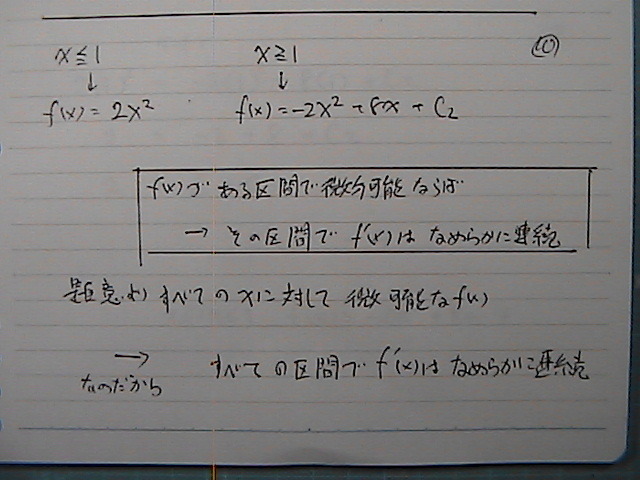 ⑩
x≦1 x≧1
↓ ↓
f(x) = 2x² f(x) = -2x² + 8x + C₂
f(x)が ある区間で微分可能ならば
→ その区間で f'(x)は なめらかに連続
題意より すべてのxに対して 微分可能なf(x)
→ すべての区間で f'(x)は なめらかに連続
なのだから